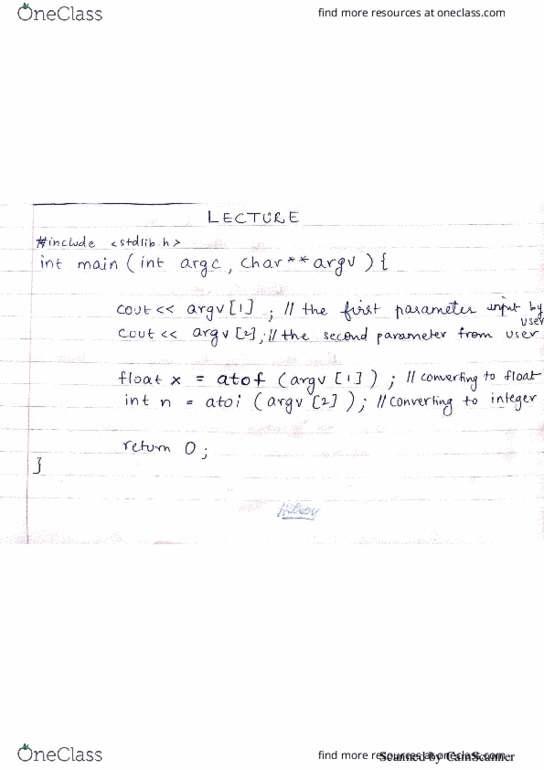 OneClass
find more resources at oneclass.com
LECTURE
#include <stdlib.h>
int main (int argc, char** argv) {
cout << argv[1] ; // the first parameter input by
user
cout << argv [2]; // the second parameter from user
float x = atof (argv [1]) ; // converting to float
int n = atoi (argv [2]); // converting to integer
return 0;
}
OneClass
find more resources at oneclass.com
Scanned by CamScanner